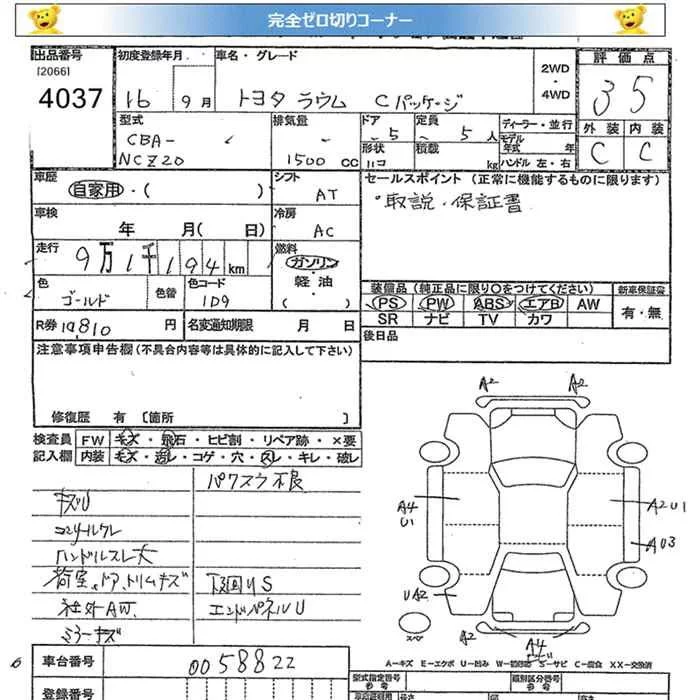 完全ゼロ切りコーナー
出品番号 初度登録年月 車名・グレード 2WD 評価点
[2066]
4037 16 9月 トヨタ ラウム Cパッケージ ・4WD 3 5
型式 排気量 ドア 定員 ディーラー・並行 外装 内装
CBA- 5 5人 モデル年式 年 C C
NCZ20 1500 CC 形状 積載 kg ハンドル 左・右
車歴 シフト セールスポイント (正常に機能するものに限ります)
自家用・( ) AT ・取説・保証書
車検 年 月( 日) 冷房 AC
走行 9万1千194km 燃料 ガソリン
色 色替 色コード ・軽油・ 装備品 (純正品に限り○をつけてください) 新車保証書
ゴールド 1D9 ( ) PS PW ABS エアB AW 有・無
SR ナビ TV カワ
R券 10810 円 名変通知期限 月 日 後日品
注意事項申告欄 (不具合内容等は具体的に記入して下さい)
修復歴 有 [箇所 ]
検査員 FW キズ・飛石・ヒビ割・リペア跡・×要
記入欄 内装 キズ・汚レ・コゲ・穴・スレ・キレ・破レ
パワスウ不良
キズU
コンソールワレ
ハンドルスレ大
荷室、ドア、トリムキズ 下廻りS
社外AW. エンドパネルU
ミラーキズ
A2 A2
A4 U1 A2U1
AU3
UA2
スペ A2 A4
6 車台番号 0058822
A-キズ E-エクボ U-凹み S-サビ C-腐食 XX-交換済
登録番号 型式指定番号 参考 類別区分番号 参考
長さ 幅 高さ